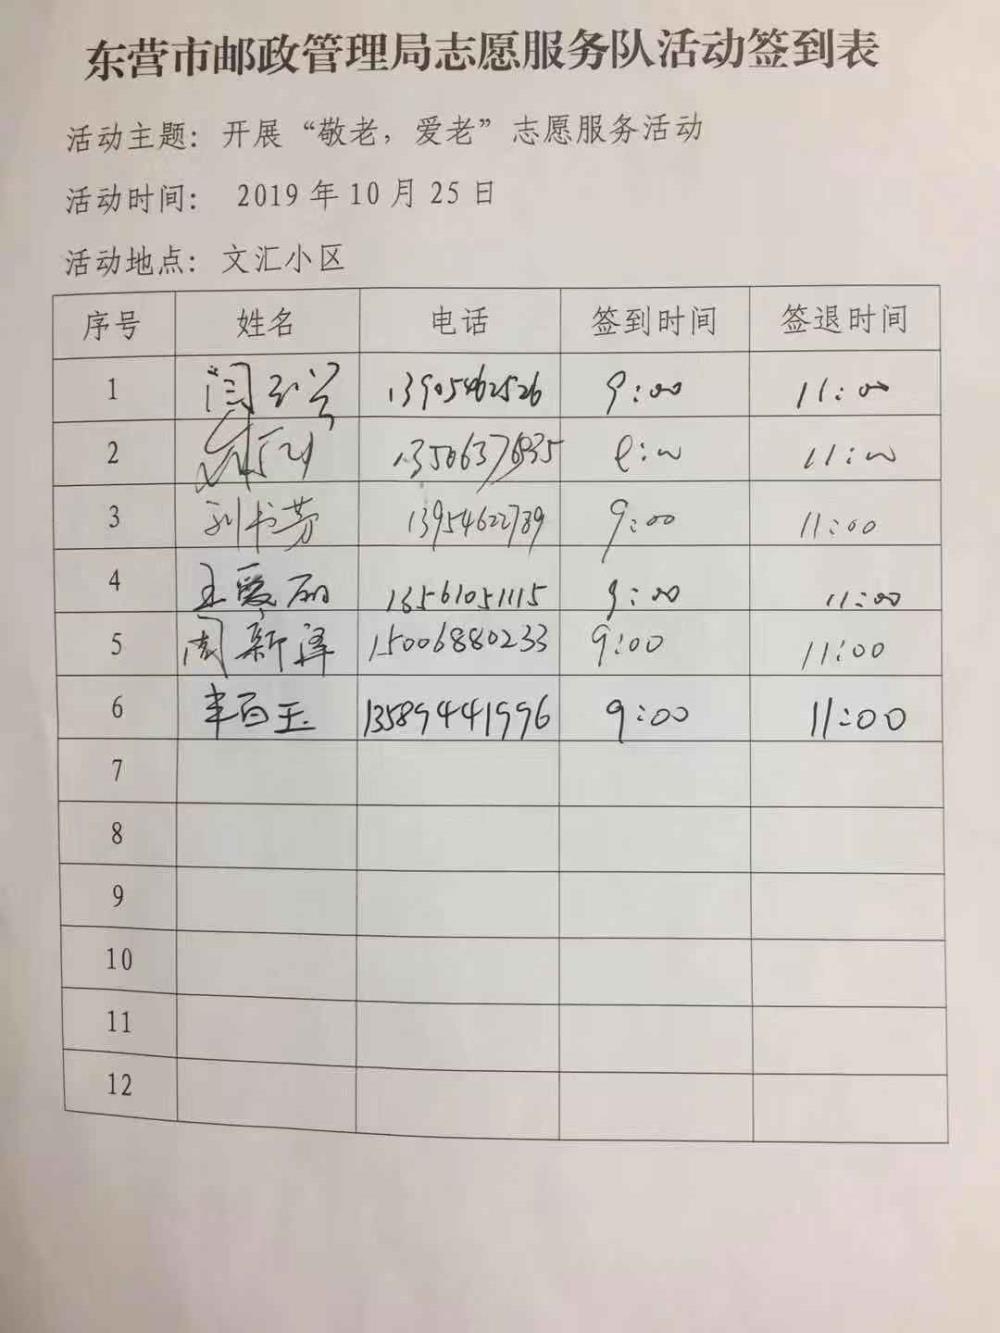 东营市邮政管理局志愿服务队活动签到表
活动主题：开展“敬老，爱老”志愿服务活动
活动时间： 2019 年 10 月 25 日
活动地点：文汇小区
序号 姓名 电话 签到时间 签退时间
1 闫 13905462526 9:00 11:00
2 11:00
3 刘书芳 13954622789 9:00 11:00
4 王爱丽 13561051115 9:00 11:00
5 周新泽 15006880233 9:00 11:00
6 百玉 13589441996 9:00 11:00
7
8
9
10
11
12